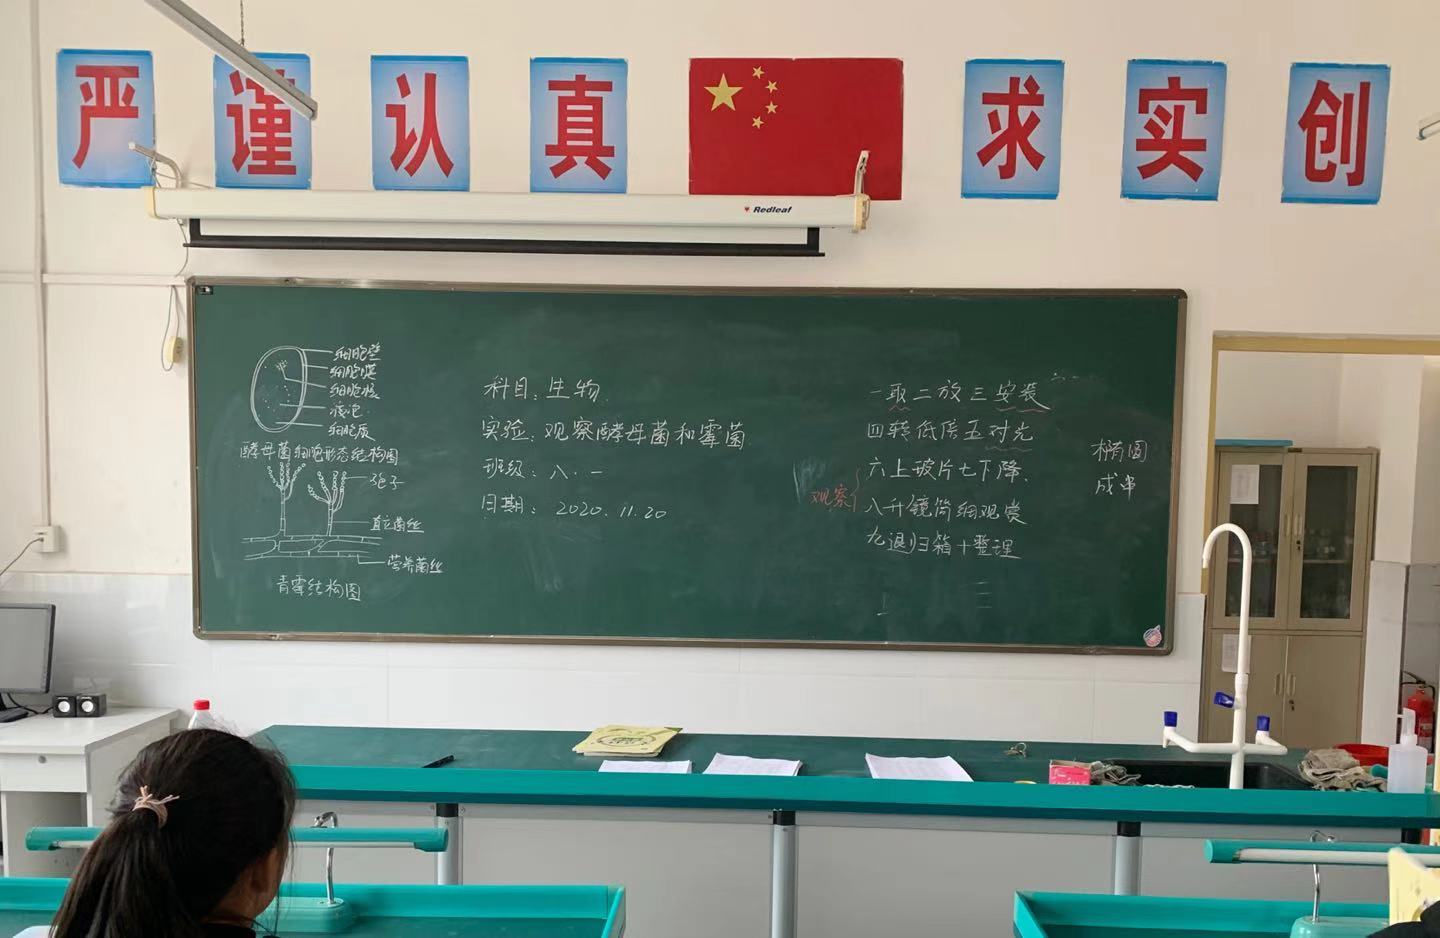 严 谨 认 真 求 实 创
Redleaf
细胞壁
细胞膜
细胞核
液泡
细胞质
酵母菌细胞形态结构图
孢子
直立菌丝
营养菌丝
青霉结构图
科目：生物
实验：观察酵母菌和霉菌
班级：八.一
日期：2020.11.20
一取二放三安装
四转低倍五对光
六上玻片七下降.
八升镜筒细观赏
九退归箱十整理
观察
椭圆
成串